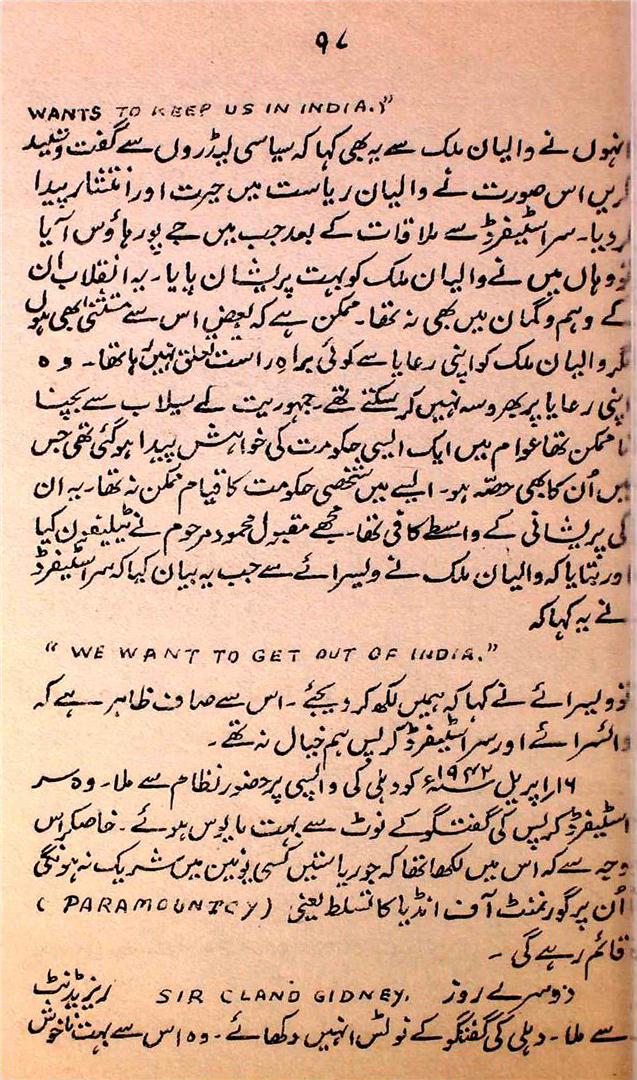 ۹۷
WANTS TO KEEP US IN INDIA.?"
انہوں نے والیان ملک سے یہ بھی کہا کہ سیاسی لیڈروں سے گفت وشنید
کریں اس صورت نے والیان ریاست میں حیرت اور انتشار پیدا
کردیا۔ سر اسٹیفرڈ سے ملاقات کے بعد جب میں جے پور ہاؤس آیا
تو وہاں میں نے والیان ملک کو بہت پریشان پایا۔ یہ انقلاب ان
کے وہم و گمان میں بھی نہ تھا۔ ممکن ہے کہ بعض اس سے مستثنیٰ بھی ہوں
مگر والیان ملک کو اپنی رعایا سے کوئی براہِ راست تعلق نہیں رہا تھا۔ وہ
اپنی رعایا پر بھروسہ نہیں کر سکتے تھے۔ جمہوریت کے سیلاب سے بچنا
نا ممکن تھا عوام میں ایک ایسی حکومت کی خواہش پیدا ہوگئی تھی جس
میں اُن کا بھی حصہ ہو۔ ایسے میں شخصی حکومت کا قیام ممکن نہ تھا۔ یہ ان
کی پریشانی کے واسطے کافی تھا۔ مجھے مقبول محمود مرحوم نے ٹیلیفون کیا
اور بتایا کہ والیان ملک نے ویسرائے سے جب یہ بیان کیا کہ سر اسٹیفرڈ
نے یہ کہا کہ
"WE WANT TO GET OUT OF INDIA."
تو ویسرائے نے کہا کہ ہمیں لکھ کر دیجئے۔ اس سے صاف ظاہر ہے کہ
وائسرائے اور سر اسٹیفرڈ کرپس ہم خیال نہ تھے۔
۱۶ اپریل ۱۹۴۲ء کو دہلی کی واپسی پر حضور نظام سے ملا۔ وہ سر
اسٹیفرڈ کرپس کی گفتگو کے نوٹ سے بہت مایوس ہوئے۔ خاصکر اس
وجہ سے کہ اس میں لکھا تھا کہ جو ریاستیں کسی یونین میں شریک نہ ہونگی
اُن پر گورنمنٹ آف انڈیا کا تسلط یعنی (PARAMOUNTCY)
قائم رہے گی۔
دوسرے روز SIR CLAND GIDNEY. ریزیڈنٹ
سے ملا۔ دہلی کی گفتگو کے نوٹس انہیں دکھائے۔ وہ اس سے بہت ناخوش